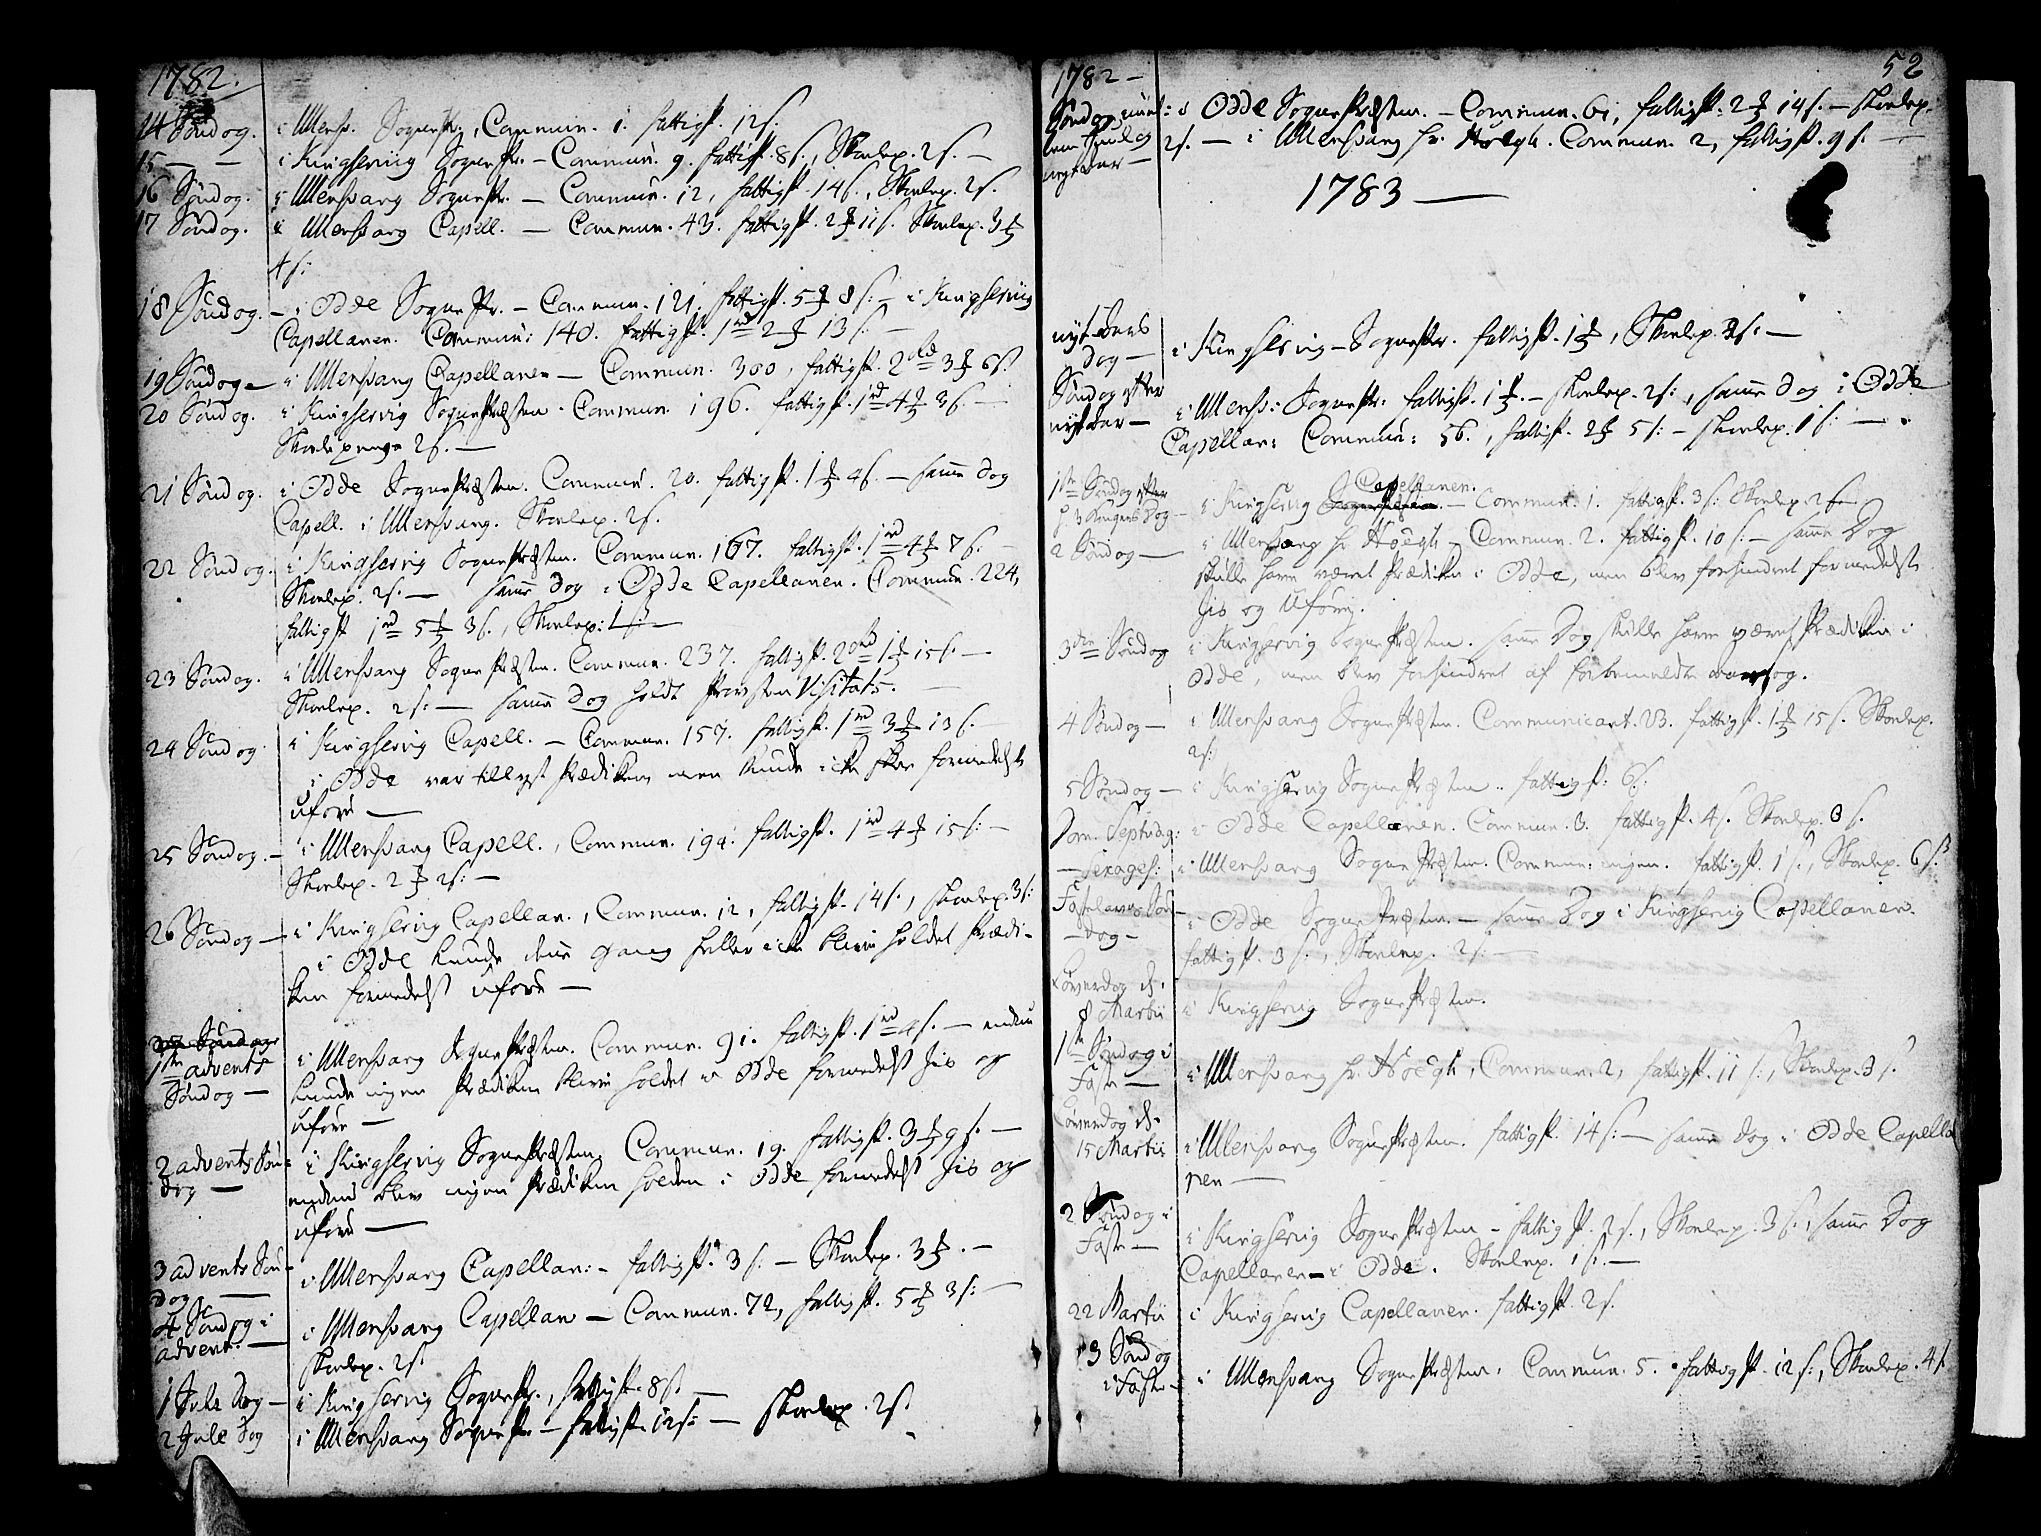 1782.
14 Søndag. i Ullensv. Sognepr., Commun. 1. fattigp. 12 s.
15 — — i Kingservig Sognepr. — Commun. 9. fattigp. 8 s., Skolep. 2 s. —
16 Søndag. i Ullensvang Sognepr. — Commun. 12, fattigp. 14 s., Skolep. 2 s.
17 Søndag. i Ullensvang Capell. — Commun. 43. fattigp. 2 ₰ 11 s. Skolep. 3 ₰
4 s:
18 Søndag. — i Odde Sognepr. — Commun. 121, fattigp. 5 ₰ 8 s: — i Kingservig
Capellanen. Commun: 140. fattigp. 1 rd 2 ₰ 13 s: —
19 Søndag — i Ullensvang Capellanen — Commun. 300, fattigp. 2 rd 3 ₰ 6 s.
20 Søndag. i Kingservig Sognepræsten. Commun. 196. fattigp. 1 rd 4 ₰ 3 s. —
Skolepenge 2 s. —
21 Søndag. i Odde Sognepræsten. Commun. 20. fattigp. 1 ₰ 4 s. — samme dag
Capell. i Ullensvang. Skolep. 2 s.
22 Søndag. i Kingservig Sognepræsten. Commun. 167. fattigp. 1 rd 4 ₰ 8 s. —
Skolep. 2 s. — samme dag i Odde Capellanen. Commun. 224,
fattigp 1 rd 5 ₰ 3 s., Skolep: 1 s: —
23 Søndag. i Ullensvang Sognepræsten. Commun. 237. fattigp. 2 rd 1 ₰ 15 s. —
Skolep. 2 s: — samme dag holdt Provsten Visitats. —
24 Søndag. i Kingservig Capell. — Commun. 157. fattigp. 1 rd 3 ₰ 13 s. —
i Odde var tillyst Prædiken men kunde ikke skee formedelst
uføre —
25 Søndag. — i Ullensvang Capell., Commun. 194. fattigp. 1 rd 4 ₰ 15 s: —
Skolep. 2 ₰ 2 s: —
26 Søndag — i Kingservig Capellan., Commun. 12, fattigp. 14 s., skolep. 3 s:
i Odde kunde denne gang heller ikke blive holdet Prædi-
ken formedelst uføre —
27 Søndag
1ste advents Søndag — i Ullensvang Sognepræsten. Commun. 91. fattigp. 1 rd 4 s. — endnu
kunde ingen Prædiken blive holdet i Odde formedelst Jis og
uføre —
2 advents Søn- i Kingservig Sognepræsten, Commun. 19. fattigp. 3 ₰ 9 s. —
dag — endnu blev ingen Prædiken holden i Odde formedelst Jis og
uføre —
3 advents Søn- i Ullensvang Capellan: — fattigp. 3 s. — Skolep. 3 ₰. —
dag —
4 Søndag i i Ullensvang Capellan — Commun. 72, fattigp. 5 ₰ 3 s: —
advent. — skolep. 2 s.
1 Jule Dag — i Kingservig Sognepr., fattigp. 8 s. —
2 Jule dag i Ullensvang Sognepr. — fattigp. 12 s: — skolep. 2 s.
1782 — 52
Søndag imel: i Odde Sognepræsten. — Commun. 61, fattigp. 2 ₰ 14 s. — skolep:
lem Juul og 2 s. — i Ullensvang hr. Høegh. Commun. 2, fattigp. 9 s. —
nytaar —
1783 —
nyt Aars
dag — i Kingservig — Sognepr. fattigp. 1 ₰, Skolep. 3 s. —
Søndag efter i Ullensv: Sognepr. fattigp. 1 ₰. — skolep. 2 s:, samme dag i Odde
nyt Aar — Capellan: Commun: 56., fattigp. 2 ₰ 5 s: — skolep. 1 s: —
1ste Søndag efter Capellanen.
h. 3 Kongers Dag — i Kingservig Sognepræsten. — Commun. 1. fattigp. 3 s: Skolep. 2 s.
2 Søndag — i Ullensvang hr. Høegh — Commun. 2. fattigp. 10 s. — samme Dag
skulle have været Prædiken i Odde, men blev forhindret formedelst
Jis og Uføre.
3die Søndag i Kingservig Sognepræsten. samme Dag skulle have været Prædiken i
Odde, men blev forhindret af forbemeldte aarsag.
4 Søndag — i Ullensvang Sognepræsten. Communicant. 23. fattigp. 1 ₰ 15 s. Skolep.
2 s:
5 Søndag — i Kingservig Sognepræsten.. fattigp: 6 s.
Dom. Septuag: i Odde Capellanen. Commun. 3. fattigp. 4 s. Skolep. 3 s.
— Sexages: i Ullensvang Sognepræsten. Commun: ingen. fattigp. 1 s., Skolep. 6 s.
Fastelavns Søn- i Odde Sognepræsten — samme Dag i Kingservig Capellanen.
dag — fattigp. 3 s., Skolep. 2 s: —
Løverdag d.
8 Martii i Kingservig Sognepræsten.
1ste Søndag i
Faste — i Ullensvang hr. Høegh, Commun. 2, fattigp. 11 s:, Skolep. 3 s.
Løverdag d. i Ullensvang Sognepræsten. fattigp. 14 s: — samme dag i Odde Capella
15 Martii nen —
2 Søndag i i Kingservig Sognepræsten — fattigp. 2 s., Skolep. 3 s., samme Dag
Faste — Capellanen — i Odde. Skolep. 1 s. —
22 Martii i Kingservig Capellanen. fattigp. 2 s.
3 Søndag
i Faste — i Ullensvang Sognepræsten. Commun. 5. fattigp. 12 s:, Skolep. 4 s.